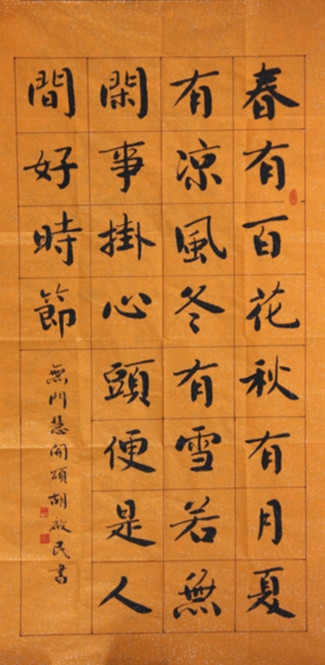 春有百花秋有月夏
有凉風冬有雪若無
閑事掛心頭便是人
間好時節
無門慧開頌胡啟民書